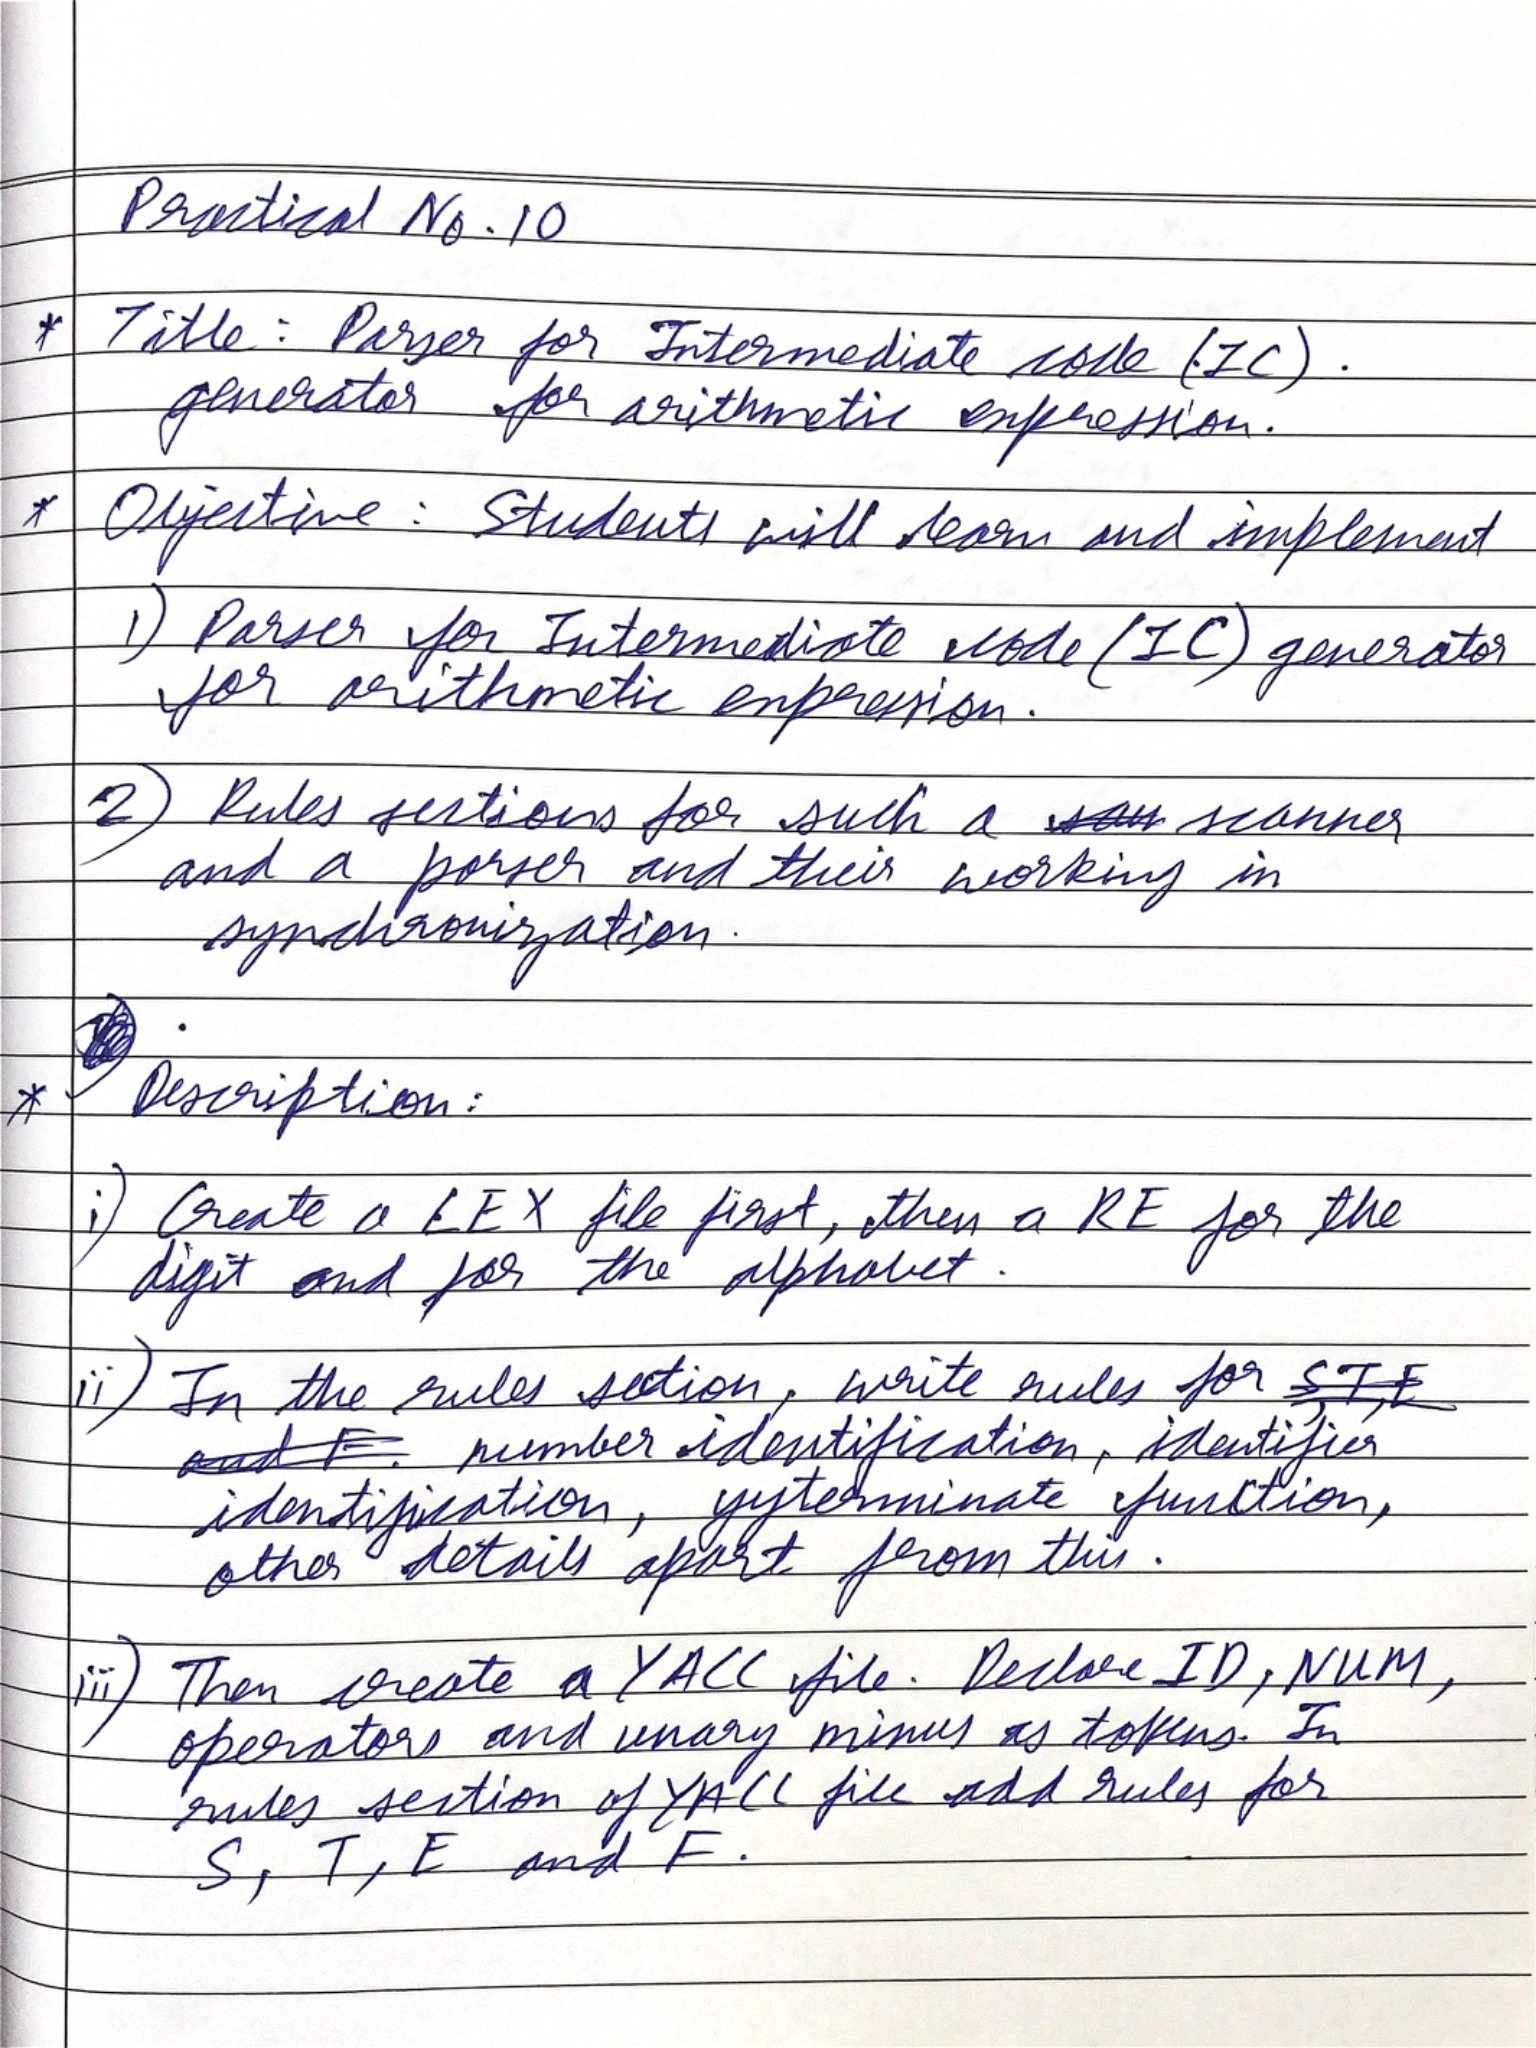 Practical No. 10
* Title: Parser for Intermediate code (IC).
generator for arithmetic expression.
* Objective: Students will learn and implement
1) Parser for Intermediate code (IC) generator
for arithmetic expression.
2) Rules sections for such a scanner
and a parser and their working in
synchronization.
* Description:
i) Create a LEX file first, then a RE for the
digit and for the alphabet.
ii) In the rules section, write rules for S,T,E
and F. number identification, identifier
identification, yyterminate function,
other details apart from this.
iii) Then create a YACC file. Declare ID, NUM,
operators and unary minus as tokens. In
rules section of YACC file add rules for
S, T, E and F.